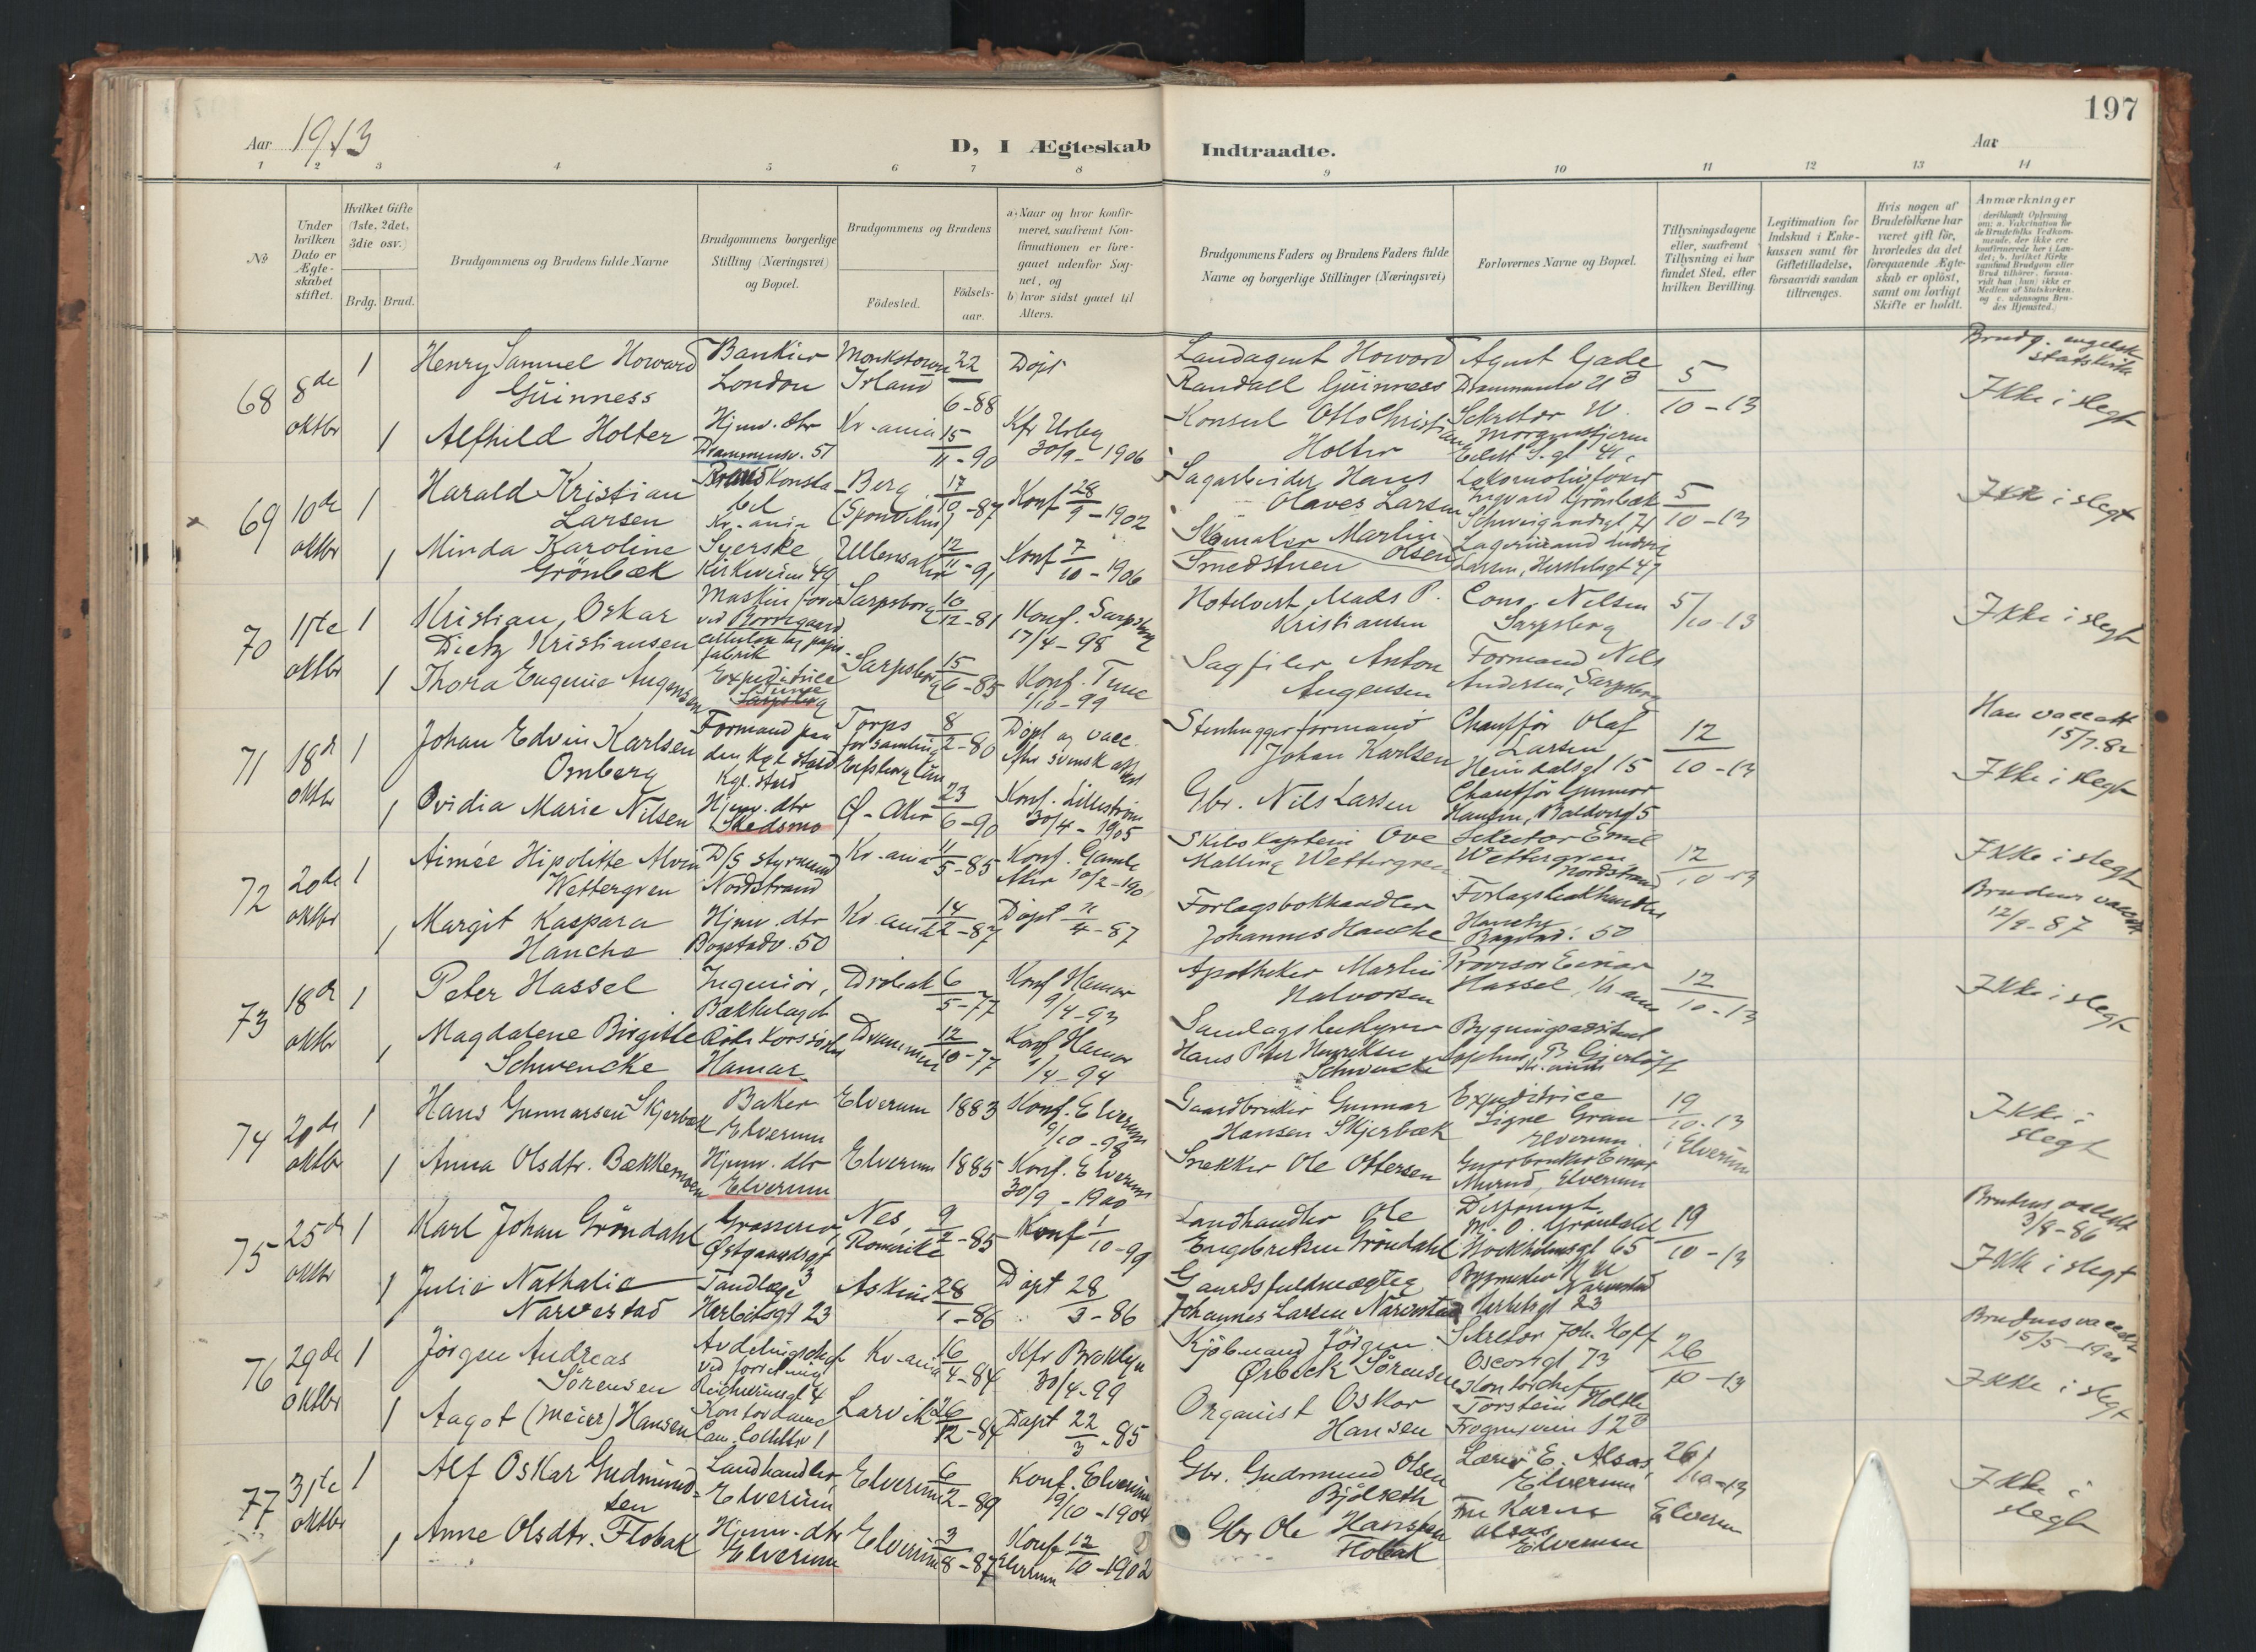 197
Aar 1913
D, I Ægteskab Indtraadte.
Aar
1 2 3 4 5 6 7 8 9 10 11 12 13 14
No
Under hvilken Dato er Ægteskabet stiftet.
Hvilket Gifte (1ste, 2det, 3die osv.)
Brdg. Brud.
Brudgommens og Brudens fulde Navne
Brudgommens borgerlige Stilling (Næringsvei) og Bopæl.
Brudgommens og Brudens
Födested.
Födsels-aar.
a) Naar og hvor konfirmeret, saafremt Konfirmationen er foregaaet udenfor Sognet, og
b) hvor sidst gaaet til Alters.
Brudgommens Faders og Brudens Faders fulde Navne og borgerlige Stillinger (Næringsvei)
Forlovernes Navne og Bopæl.
Tillysningsdagene eller, saafremt Tillysning ei har fundet Sted, efter hvilken Bevilling
Legitimation for Indskud i Enkekassen samt for Giftetilladelse, forsaavidt saadan tiltrænges.
Hvis nogen af Brudefolkene har været gift för, hvorledes da det foregaaende Ægteskab er oplöst, samt om lovligt Skifte er holdt.
Anmærkninger
68 8de oktbr
1 Henry Samuel Howard Güinness
Bankier London
Monkstown Irland
22/6-88
Döpt
Landagent Howard Randall Güinness
Agent Gade
5/10-13
Brudg. engelsk statskirke
Ikke i slegt
1 Alfhild Holter
Hjmv. dtr Drammensv. 51
Kr.ania
15/11-90
Kfr Urbg 30/9-1906
Konsul Otto Christian Holter
Sekretær W. Morgenstjerne
69 10de oktbr
1 Harald Kristian Larsen
Konstabel Kr.ania
Berg
17/10-87
Konf 28/9-1902
Sagarbeider Hans Olaves Larsen
Lokomotivförer Ingvard Grönbæk Schweigaardsgt 71
5/10-13
Ikke i slegt
1 Minda Karoline Grönbæk
Syerske Kirkeveien 49
Ullensaker
12/11-91
Konf 7/10-1906
Skomaker Martin Olsen Smedstuen
Lagermand Ludvig Larsen, Herslebsgt 47
70 11te oktbr
1 Kristian, Oskar Dietz Kristiansen
Maskinförer ved Borregaard fabrik
Sarpsborg
10/12-81
Konf. Sarpsborg 17/4-98
Hotelvert Mads P. Kristiansen
Cons. Nilsen Sarpsborg
5/10-13
Ikke i slegt
1 Thora Eugenie Augensen
Expeditrice Tune Sarpsborg
Sarpsborg
15/6-85
Konf. Tune 1/10-99
Sagfiler Anton Augensen
Formand Nils Andersen, Sarpsborg
71 18de oktbr
1 Johan Edvin Karlsen Ornberg
Formand paa den kgl stald Kgl. stald
Torps forsamling Elfsborg län
8/2-80
Döpt og vacc. efter svensk attest
Stenhuggerformand Johan Karlsen
Chaufför Olaf Larsen Heimdalsgt 15
12/10-13
Han vacc att 15/7.82
Ikke i slegt
1 Ovidia Marie Nilsen
Hjmv. dtr Skedsmo
Ø-Aker
23/6-90
Konf. Lilleström 30/4-1905
Gbr. Nils Larsen
Chaufför Gunnar Hansen, Baldersgt 5
72 20de oktbr
1 Aimée Hipolitte Alvin Wettergren
D/S styrmand Nordstrand
Kr.ania
11/5-85
Konf. Gamle Aker 10/2-190
Skibskaptein Ove Malling Wettergren
Sekretær Emil Wettergren Nordstrand
12/10-13
Ikke i slegt
1 Margit Kaspara Hanche
Hjmv. dtr Bogstadv. 50
Kr.ania
14/2-87
Döpt 11/4-87
Forlagsbokhandler Johannes Hanche
Forlagsbokhandler Hanche Bogstadv. 50
Brudens vaccatt 12/9-87
73 18de oktbr
1 Peter Hassel
Ingeniör, Bækkelaget
Dröbak
6/5-77
Konf Hamar 9/4-93
Apotheker Martin Halvorsen
Provisor Einar Hassel, Kr.ania
12/10-13
Ikke i slegt
1 Magdalene Birgitte Schwencke
Röde Korssöster Hamar
Drammen
12/10-77
Konf Hamar 1/4-94
Hans Peter Henriksen Schwencke
Bygningsassistent
74 20de oktbr
1 Hans Gunnarsen Skjerbæk
Baker Elverum
Elverum
1883
Konf. Elverum 9/10-98
Gaardbruker Gunnar Hansen Skjerbæk
Expeditrice Signe Gran Elverum
19/10-13 i Elverum
Ikke i slegt
1 Anna Olsdtr. Bækkemoen
Hjmv. dtr Elverum
Elverum
1885
Konf. Elverum 30/9-1900
Snekker Ole Ottersen
Gaardbruker Einar Elverum
75 25de oktbr
1 Karl Johan Gröndahl
Grosserer, Østgaardsgt 3
Nes, Romerike
9/2-85
Konf 1/10-99
Landhandler Ole Engebretsen Gröndahl
Disponent M. O. Gröndahl Stockholmsgt 65
19/10-13
Brudens vaccatt 3/8-86
Ikke i slegt
1 Julie Nathalie Narvestad
Tandlæge Herslebsgt 23
Askim
28/1-86
Döpt 28/3-86
Gaardsfuldmægtig Johannes Larsen Narvestad
Narvestad Herslebsgt 23
76 29de oktbr
1 Jörgen Andreas Sörensen
Avdelingschef
Kr.ania
16/4-84
Kfr Broklyn 30/4-99
Kjöbmand Jörgen Ørbeck Sörensen
Sekretær Joh. Hoff Oscarsgt 73
26/10-13
Brudens vaccatt 15/5-1900
Ikke i slegt
1 Aagot (Meier) Hansen
Kontordame Cam. Collettsv 1
Larvik
26/12-84
Döpt 22/3-85
Organist Oskar Hansen
Kontorchef Torstein Holthe Frognerveien 12B
77 31te oktbr
1 Alf Oskar Gudmundsen
Landhandler, Elverum
Elverum
6/2-89
Konf. Elverum 9/10-1904
Gbr. Gudmund Olsen Bjölseth
Lærer E. Alsos, Elverum
26/10-13 Elverum
Ikke i slegt
1 Anne Olsdtr. Flobak
Hjmv. dtr Elverum
Elverum
3/8-87
Konf 12/10-1902 Elverum
Gbr Ole Hansen Flobak
Fru Karen Alsos, Elverum